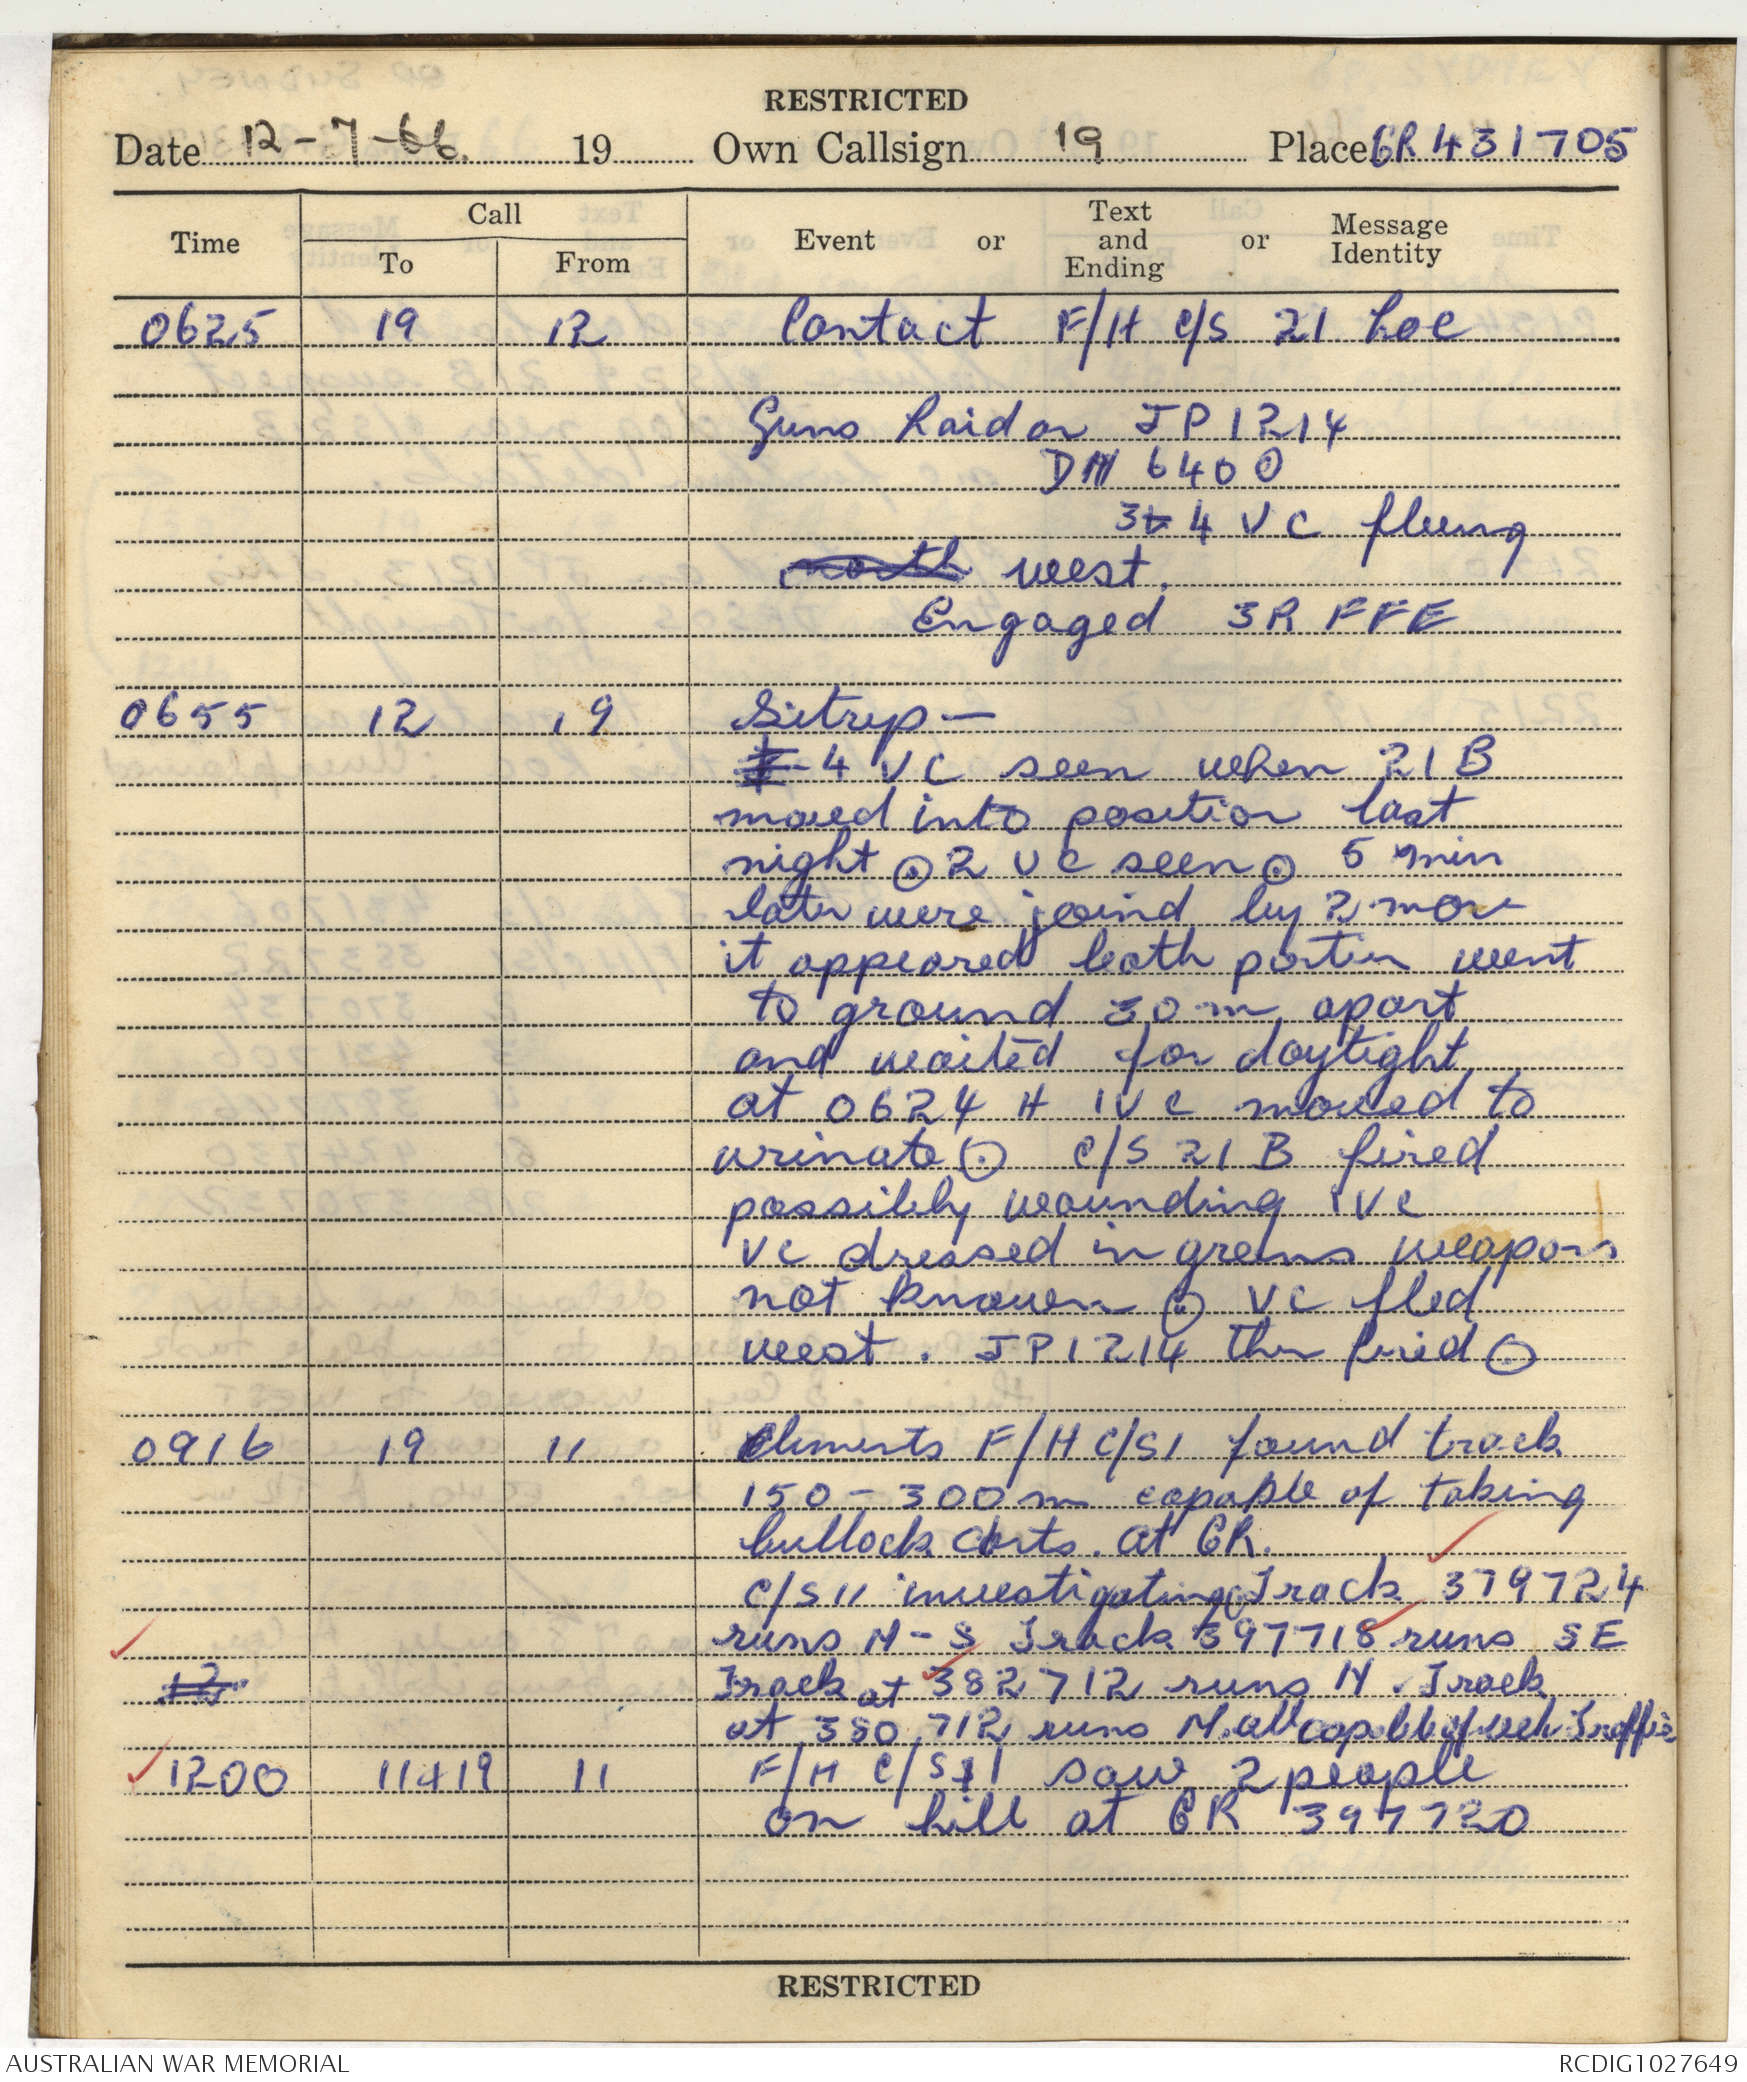 RESTRICTED
Date 12-7-66. 19 Own Callsign 19 Place GR 431705
Time Call To From Event or Text and Ending or Message Identity
0625 19 12 Contact F/H C/S 21 Loc
Guns laid on JP 1214
DN 6400
3 to 4 VC fleeing
north west.
Engaged 3R FFE
0655 12 19 Sitrep -
4 VC seen when 21B
moved into position last
night ⊙ 2 VC seen ⊙ 5 min
later were joind by 2 more
it appeared both parties went
to ground 30 m apart
and waited for daylight
at 0624 H 1VC moved to
urinate ⊙ C/S 21 B fired
possibly wounding 1VC
VC dressed in greens weapons
not known ⊙ VC fled
west. JP1214 then fired ⊙
0916 19 11 Elements F/H C/S1 found track
150 - 300 m capable of taking
bullock carts. at GR.
C/S 11 investigating Track 379724
runs N-S Track 397718 runs SE
12 Track at 382712 runs N. Track
at 380712 runs N. all capable of veh Traffic
1200 11+19 11 F/H C/S 11 saw 2 people
on hill at GR 397720
RESTRICTED
AUSTRALIAN WAR MEMORIAL RCDIG1027649